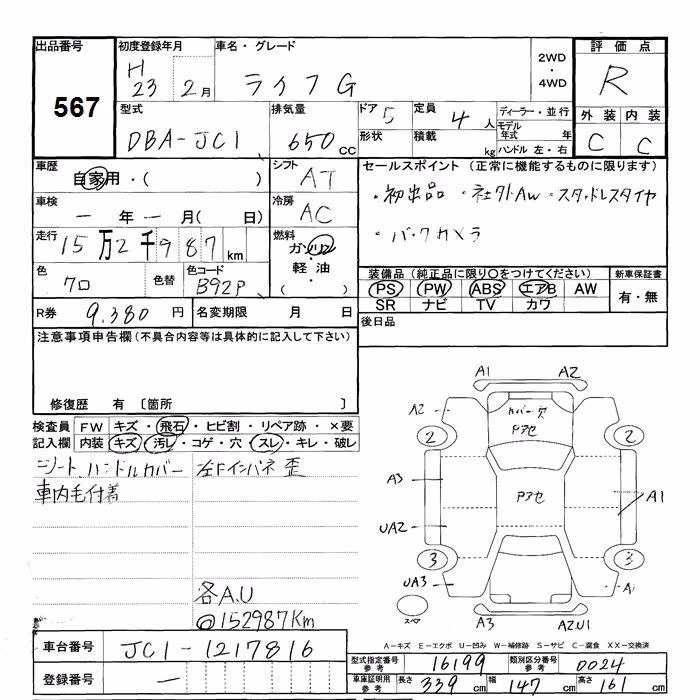 出品番号
567
初度登録年月
H 23 2月
車名・グレード
ライフG
2WD
・
4WD
評価点
R
外装 内装
C C
型式
DBA-JC1
排気量
650cc
ドア 5
定員 4人
形状
積載 kg
ディーラー・並行
モデル年式 年
ハンドル 左・右
車歴
自家用・( )
シフト
AT
セールスポイント (正常に機能するものに限ります)
・初出品 ・社外AW ・スタッドレスタイヤ
・バックカメラ
車検
ー年ー月( 日)
冷房
AC
走行
15万2千987km
燃料
ガソリン
・
軽油
・
( )
色
クロ
色替
色コード
B92P
装備品 (純正品に限り○をつけてください)
PS PW ABS エアB AW
SR ナビ TV カワ
新車保証書
有・無
R券 9,380円
名変期限 月 日
後日品
注意事項申告欄(不具合内容等は具体的に記入して下さい)
修復歴 有 〔箇所 〕
検査員記入欄
FW キズ・飛石・ヒビ割・リペア跡・×要
内装 キズ・汚レ・コゲ・穴・スレ・キレ・破レ
シート、ハンドルカバー
車内毛付着
左Fインパネ歪
各A.U
@152987Km
A1 A2
A2
カバー穴
アセ
2 2
A3
アセ
A1
UA2
3 3
UA3
A1
スペア
A3
A2U1
A-キズ E-エクボ U-凹み W-補修跡 S-サビ C-腐食 XX-交換済
車台番号 JC1-1217816
登録番号 ー
型式指定番号 参考 16199
類別区分番号 参考 0024
車庫証明用 参考 長さ 339cm 幅 147cm 高さ 161cm